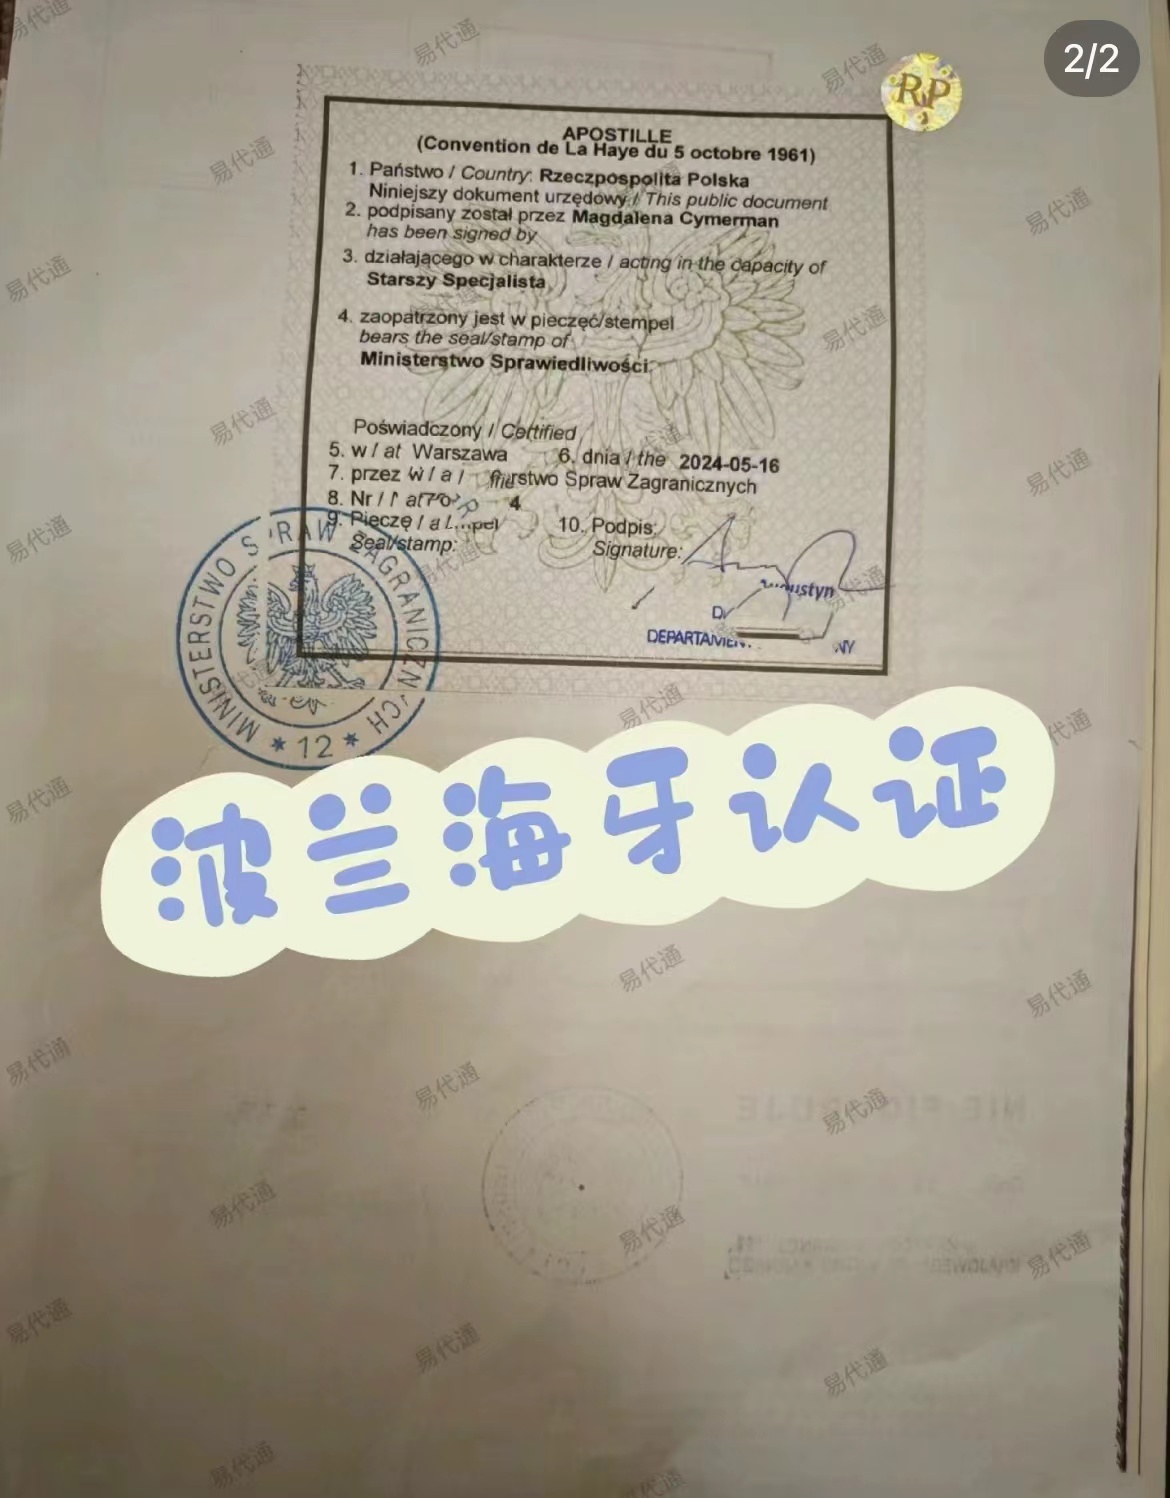 2/2
RP
APOSTILLE
(Convention de La Haye du 5 octobre 1961)
1. Państwo / Country: Rzeczpospolita Polska
Niniejszy dokument urzędowy / This public document
2. podpisany został przez Magdalena Cymerman
has been signed by
3. działającego w charakterze / acting in the capacity of
Starszy Specjalista
4. zaopatrzony jest w pieczęć/stempel
bears the seal/stamp of
Ministerstwo Sprawiedliwości
Poświadczony / Certified
5. w / at Warszawa 6. dnia / the 2024-05-16
7. przez Spraw Zagranicznych
8. Nr / 4
9. 10. Podpis:
Seal/stamp: Signature:
MINISTERSTWO SPRAW ZAGRANICZNYCH
* 12 *
波兰海牙认证
易代通